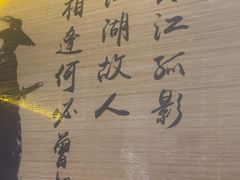 江孤影
湖故人
相逢何必曾